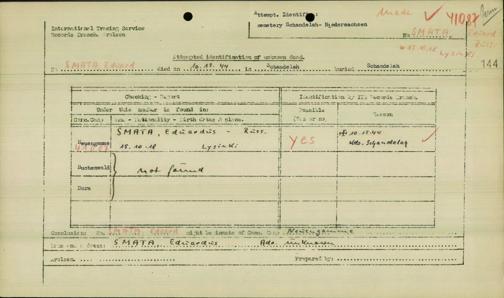 International Tracing Service
Records Branch, Arolsen
Attempt. Identific.
cemetery Schandelah- Niedersachsen
No
41087
SMATA,
Eduard
Russ.
* 15.10.18
Lysinki
144
Attempted identification of unknown dead.
No SMATA Eduard died on 10.12.44 in Schandelah buried Schandelah
Checking - Report
Identification by ITS Records
Under this number is found in:
Possible
(Yes or no)
Reason
Conc. Camp Name - Nationality - Birth date & place.
Neuengamme
SMATA, Eduardus - Russ.
15.10.18 Lysinki
yes
10.12.44
Kdo. Schandelah
Buchenwald
not found
Dora
Conclusion: No SMATA Eduard might be inmate of Conc. Camp Neuengamme
SMATA, Eduardus Adr. unknown
Arolsen, Prepared by: